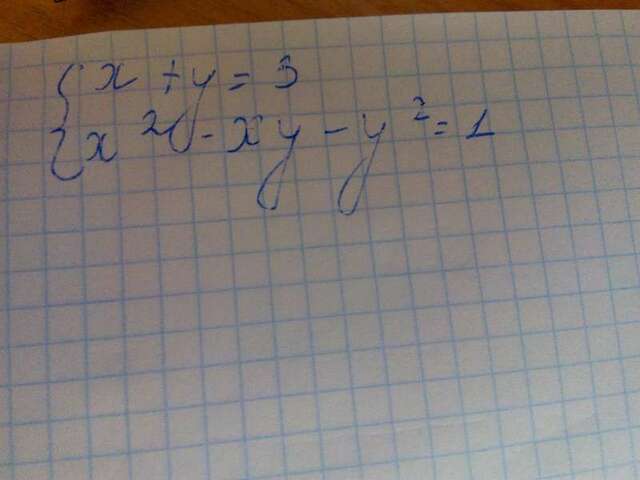 { x + y = 3
{ x² - xy - y² = 1